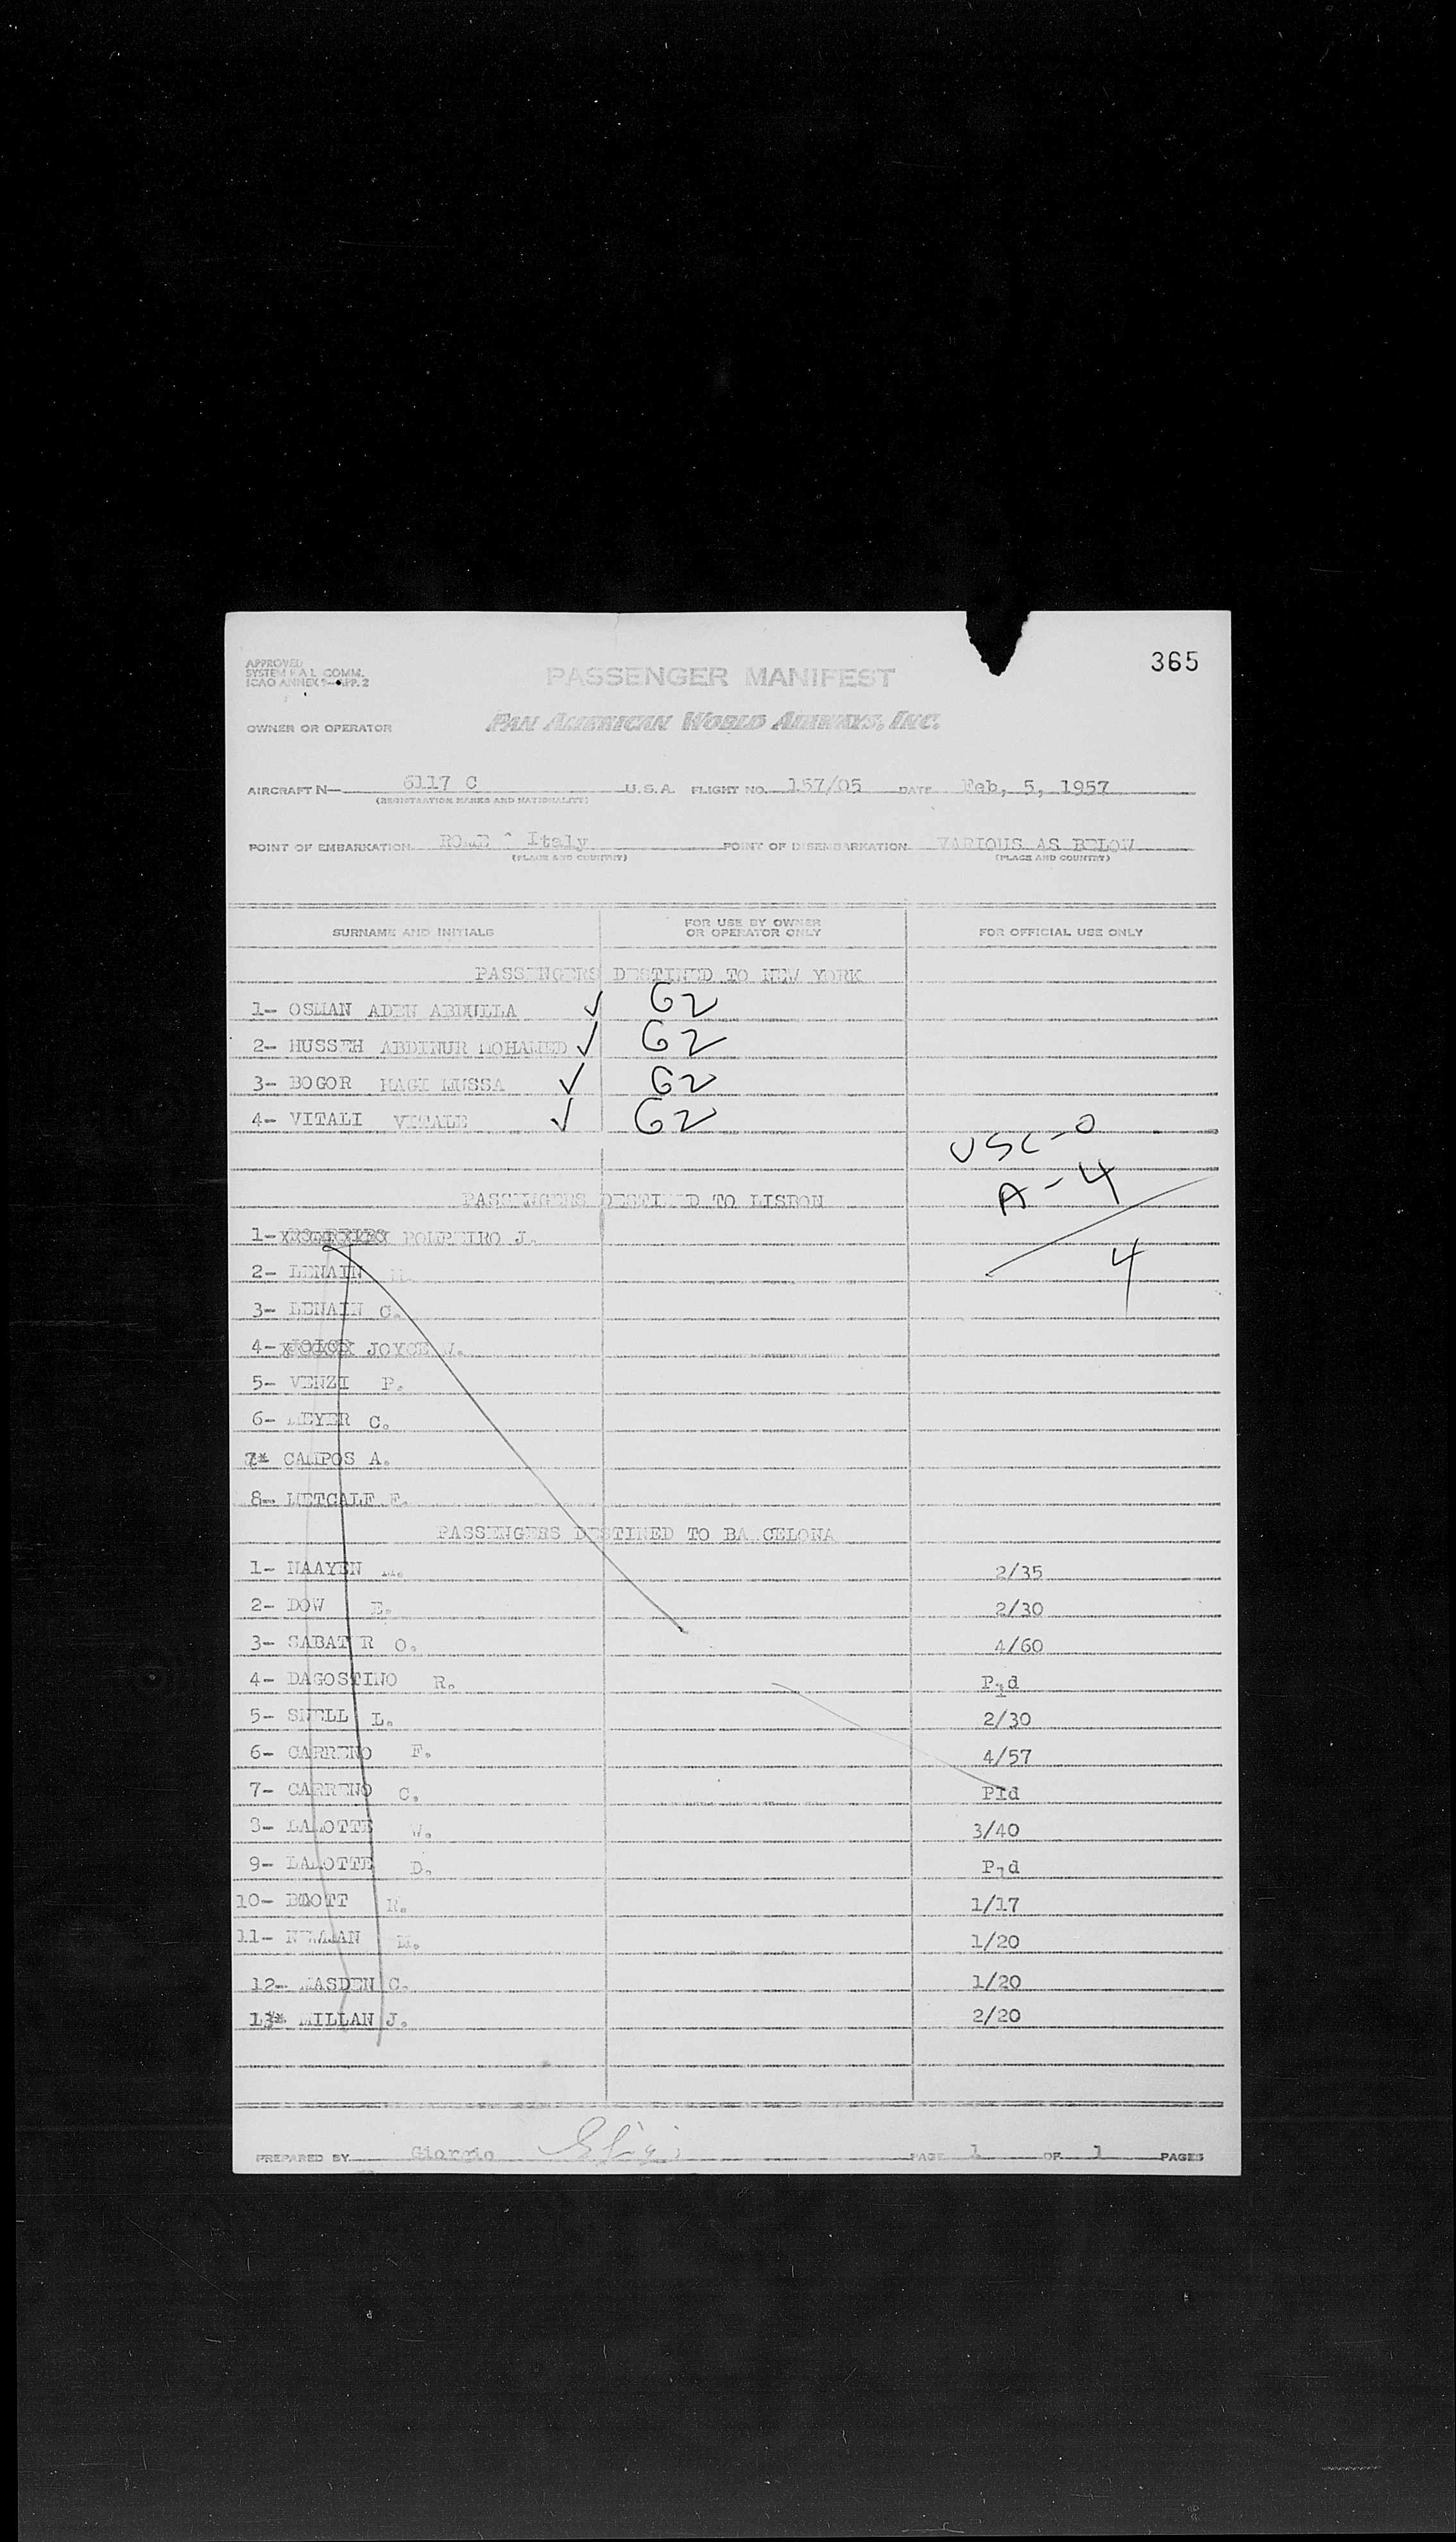 365
APPROVED
SYSTEM F A L COMM.
ICAO ANNEX 9—APP. 2
PASSENGER MANIFEST
OWNER OR OPERATOR PAN AMERICAN WORLD AIRWAYS, INC.
AIRCRAFT N— 6117 C U.S.A. FLIGHT NO. 157/05 DATE Feb, 5, 1957
(REGISTRATION MARKS AND NATIONALITY)
POINT OF EMBARKATION ROME - Italy POINT OF DISEMBARKATION VARIOUS AS BELOW
(PLACE AND COUNTRY) (PLACE AND COUNTRY)
SURNAME AND INITIALS FOR USE BY OWNER OR OPERATOR ONLY FOR OFFICIAL USE ONLY
PASSENGERS DESTINED TO NEW YORK
1- OSMAN ADEN ABDULLA ✓ G2
2- HUSSEH ABDINUR MOHAMED ✓ G2
3- BOGOR HAGI MUSSA ✓ G2
4- VITALI VITALE ✓ G2
USC-0
A-4
4
PASSENGERS DESTINED TO LISBON
1- POMPEIRO J.
2- LENAIN
3- LENAIN C.
4- JOYCE
5- VENZI P.
6- MEYER C.
7* CAMPOS A.
8- METCALF E.
PASSENGERS DESTINED TO BA CELONA
1- NAAYEN M. 2/35
2- DOW E. 2/30
3- SABAT R O. 4/60
4- DAGOSTINO R. P1d
5- SNELL L. 2/30
6- CARRENO F. 4/57
7- CARRENO C. P1d
8- LAMOTTE W. 3/40
9- LAMOTTE D. P1d
10- 1/17
11- NEWMAN 1/20
12- MASDEN C. 1/20
13* MILLAN J. 2/20
PREPARED BY Giorgio PAGE 1 OF 1 PAGES